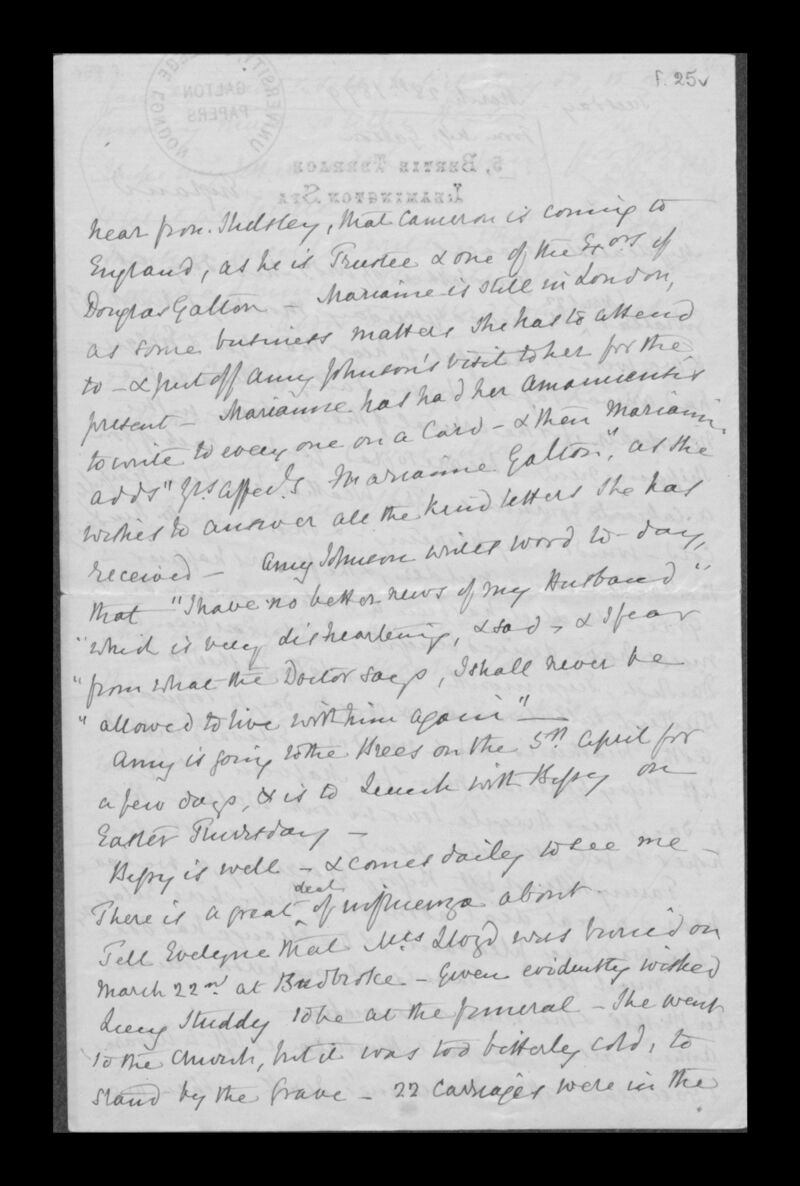 f. 25v
hear from Shelsley, that Cameron is coming to
England, as he is Trustee & one of the Exors of
Douglas Galton - Marianne is still in London,
as some business matters she has to attend
to - & put off Amy Johnson's visit to her for the
present - Marianne has had her Amanuensis
to write to every one on a Card - & then Marianne
adds "Yrs. affec.ly Marianne Galton", as she
wishes to answer all the kind letters she has
received - Amy Johnson writes word to-day,
that "I have no better news of my Husband"
"which is very disheartening, & sad, & I fear
"from what the Doctor says, I shall never be
"allowed to live with him again" -
Amy is going to the Hrees on the 5th April for
a few days, & is to Lunch with Bessy on
Easter Thursday -
Bessy is well - & comes daily to see me -
There is a great deal of influenza about -
Tell Evelyne that Mrs Lloyd was buried on
March 22nd at Budbroke - Gwen evidently wished
Lucy Studdy to be at the funeral - She went
to the Church, but it was too bitterly cold, to
stand by the Grave - 22 Carriages were in the
UNIVERSITY COLLEGE LONDON
GALTON
PAPERS
5, BERTIE TERRACE
LEAMINGTON SPA